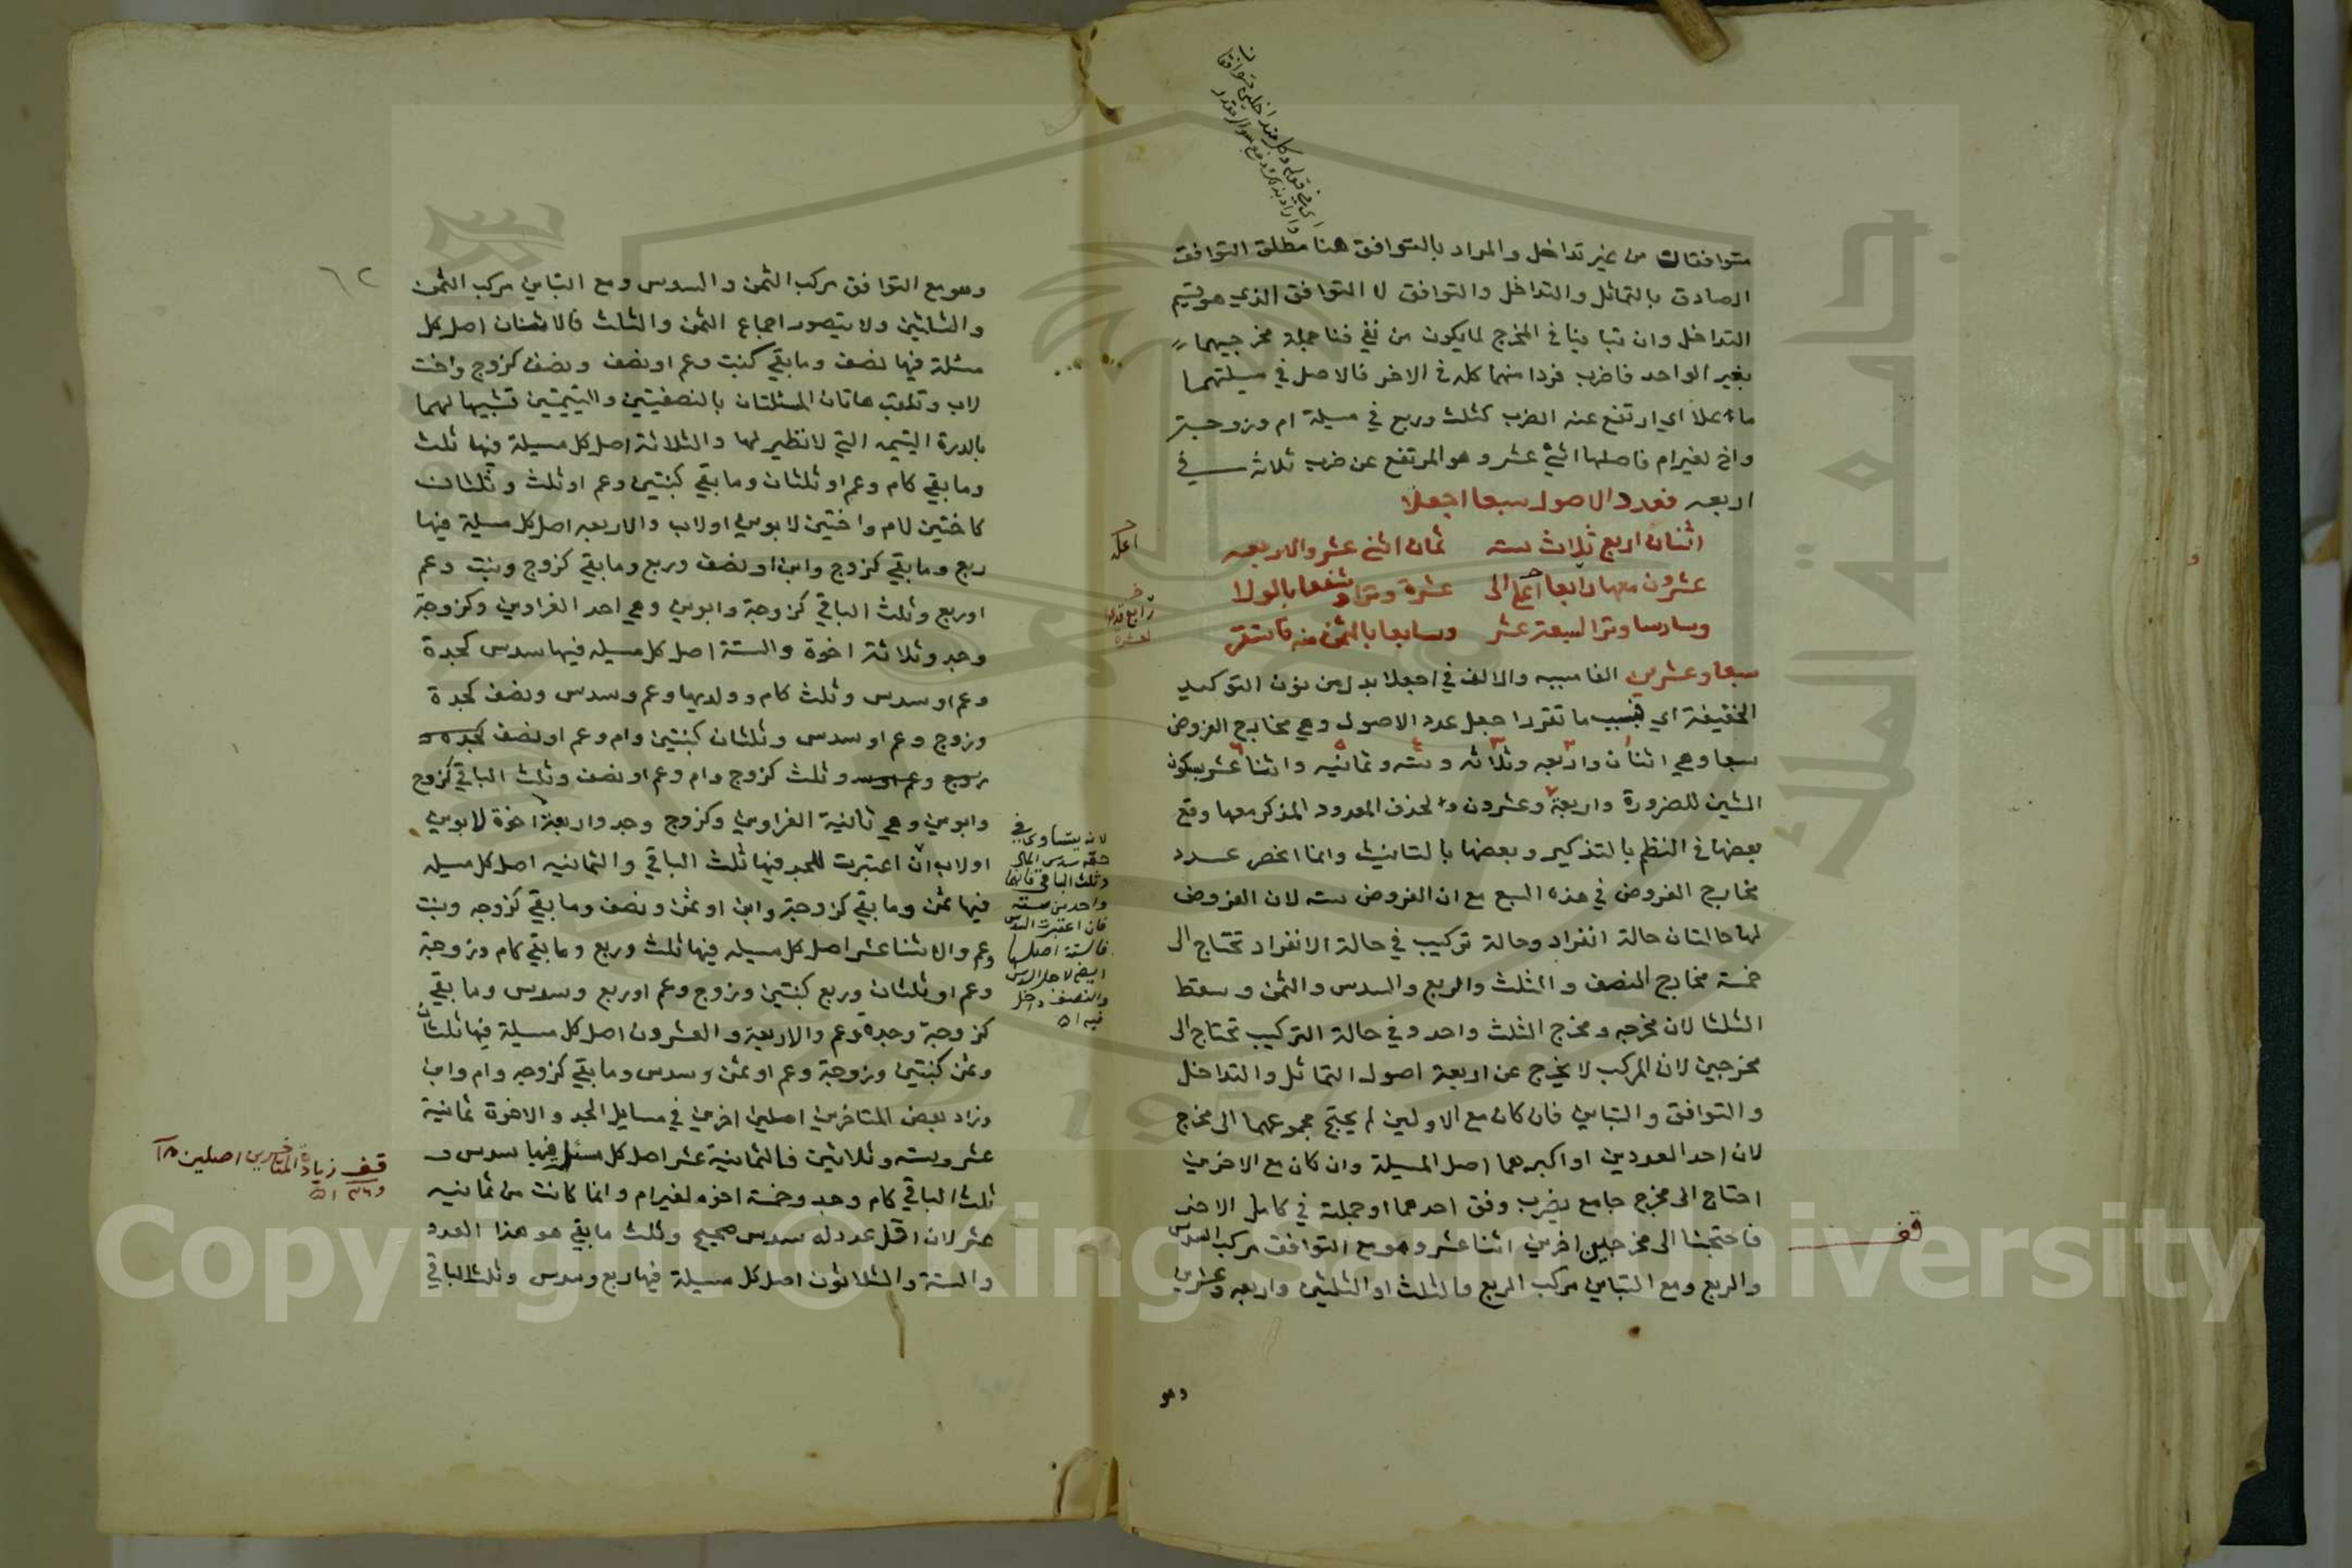 متوافقان من غير تداخل والمراد بالتوافق هنا مطلق التوافق
الصادق بالتماثل والتداخل والتوافق لا التوافق الذي هو قسيم
التداخل وان تباينا في المخرج لما يكون من نفي فنا جملة مخرجيهما
بغير الواحد فاضرب فردا منهما كله في الاخر فالاصل في مسيلتهما
ما علا اي ارتفع عنه الضرب كثلث وربع في مسيلة ام وزوجة
واخ لغير ام فاصلها اثني عشر وهو المرتفع عن ضرب ثلاثة في
اربعه فعدد الاصول سبعا اجعلا
اثنان اربع ثلاث سته ثمان اثني عشر والاربعه
عشرون معها رابعا الى عشرة وترا وشفعا بالولا
وسادسا وترا لسبعة عشر وسابعا بالثمن منه فاستقر
سبعا وعشرين الفا سببيه والالف في اجعلا بدل من نون التوكيد
الخفيفة اي فبسبب ما تقرر اجعل عدد الاصول وهي مخارج الفروض
سبعا وهي اثنان واربعه وثلاثه وسته وثمانيه واثنا عشر بسكون
الشين للضرورة واربعة وعشرون ولحذف المعدود المذكر معها وقع
بعضها في النظم بالتذكير وبعضها بالتانيث وانما انحصر عدد
مخارج الفروض في هذه السبع مع ان الفروض سته لان الفروض
لها حالتان حالة انفراد وحالة تركيب في حالة الانفراد تحتاج الى
خمسة مخارج النصف والثلث والربع والسدس والثمن وسقط
الثلثا لان مخرجه ومخرج الثلث واحد وفي حالة التركيب تحتاج الى
مخرجين لان المركب لا يخرج عن اربعة اصول التماثل والتداخل
والتوافق والتباين فان كان مع الاولين لم يحتج مجموعهما الى مخرج
لان احد العددين او اكبرهما اصل المسيلة وان كان مع الاخرين
احتاج الى مخرج جامع بضرب وفق احدهما او جملته في كامل الاخر
فاحتجنا الى مخرجين اخرين اثنا عشر وهو مع التوافق مركب السدس
والربع ومع التباين مركب الربع والثلث او الثلثين واربعه وعشرين
وهو
قف
وهو مع التوافق مركب الثمن والسدس ومع التباين مركب الثمن
والثلثين ولا يتصور اجماع الثمن والثلث فالاثنان اصل كل
مسئلة فيها نصف وما بقي كبنت وعم او نصف ونصف كزوج واخت
لاب وتلقب هاتان المسئلتان بالنصفيتين واليتيمتين تشبيها لهما
بالدرة اليتيمه التي لا نظير لها والثلاثة اصل كل مسيلة فيها ثلث
وما بقي كام وعم او ثلثان وما بقي كبنتين وعم او ثلث وثلثان
كاختين لام واختين لابوين او لاب والاربعه اصل كل مسيلة فيها
ربع وما بقي كزوج وابن او نصف وربع وما بقي كزوج وبنت وعم
او ربع وثلث الباقي كزوجة وابوين وهي احد الغراوين وكزوجة
وجد وثلاثة اخوة والستة اصل كل مسيله فيها سدس كجدة
وعم او سدس وثلث كام وولديها وعم وسدس ونصف كجدة
وزوج وعم او سدس وثلثان كبنتين وام وعم او نصف كجده و
زوج وعم وثلث كزوج وام وعم او نصف وثلث الباقي كزوج
وابوين وهي ثانية الغراوين وكزوج وجد واربعة اخوة لابوين
او لاب ان اعتبرت للجد فيها ثلث الباقي والثمانيه اصل كل مسيله
فيها ثمن وما بقي كزوجة وابن او ثمن ونصف وما بقي كزوجه وبنت
وعم والاثنا عشر اصل كل مسيله فيها ثلث وربع وما بقي كام وزوجة
وعم او ثلثان وربع كبنتين وزوج وعم او ربع وسدس وما بقي
كزوجة وجدة وعم والاربعة والعشرون اصل كل مسيلة فيها ثلثان
وثمن كبنتين وزوجة وعم او ثمن وسدس وما بقي كزوجه وام وابن
وزاد بعض المتاخرين اصلين اخرين في مسايل الجد والاخوة ثمانية
عشر وسته وثلاثين فالثمانية عشر اصل كل مسئلة فيها سدس و
ثلث الباقي كام وجد وخمسة اخوه لغير ام وانما كانت من ثمانيه
عشر لان اقل عدد له سدس صحيح وثلث ما بقي هو هذا العدد
والستة والثلاثون اصل كل مسيلة فيها ربع وسدس وثلث الباقي
لانه يتساوى في
حقه سدس المال
وثلث الباقي فانهما
واحد من سته
فان اعتبرت السدس
فالستة اصلها
ايضا لاجل السدس
والنصف داخل
فيه اه
قف زيادة المتاخرين اصلين ١٨
و٣٦ اه
٦٢
Copyright © King Saud University
جامعة الملك سعود
1957